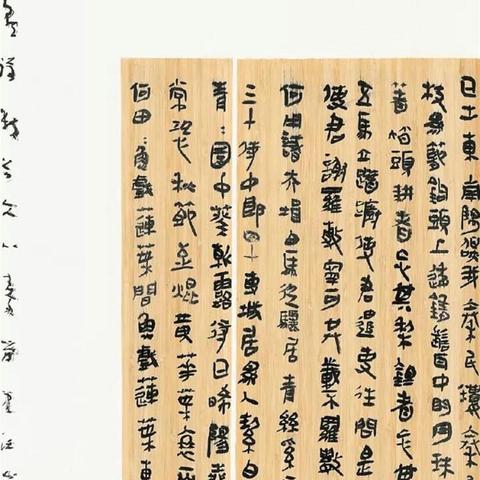 日出東南隅照我秦氏樓秦氏
枝為籠鉤頭上倭墮髻耳中明月珠
著帩頭耕者忘其犁鋤者忘其
五馬立踟躕使君遣吏往問是
使君謝羅敷寧可共載不羅敷
何用識夫婿白馬從驪駒青絲繫
三十侍中郎四十專城居為人潔白
青〻園中葵朝露待日晞陽春
常恐秋節至焜黃華葉衰
何田〻魚戲蓮葉間魚戲蓮葉東